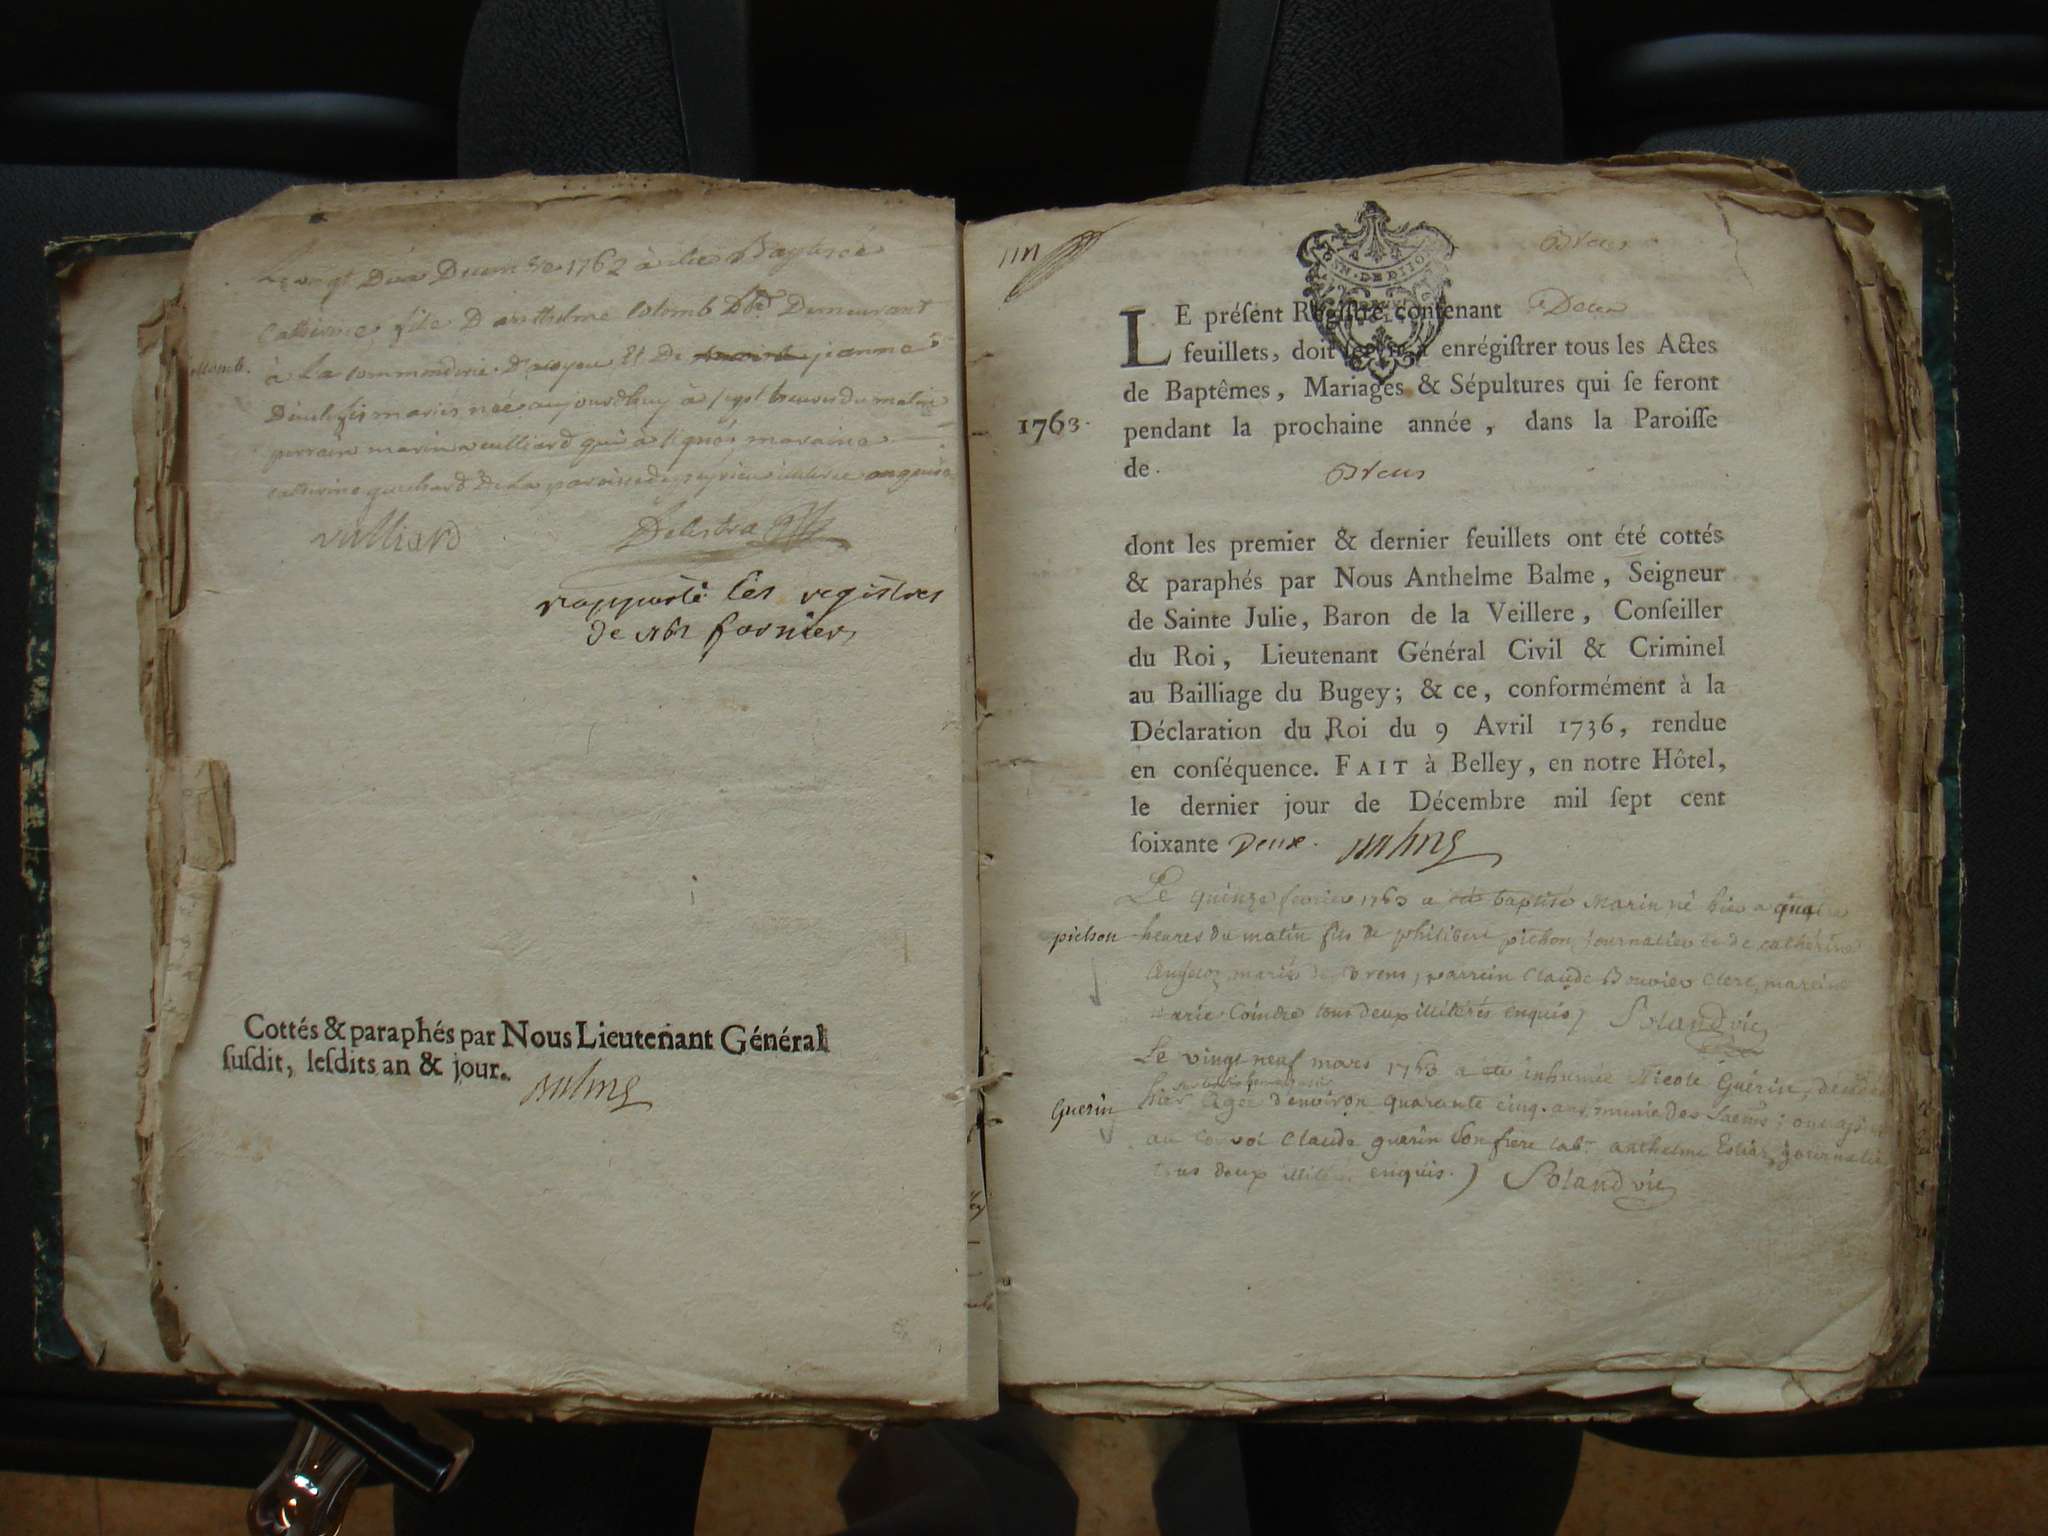 Le vingt Deux Decembre 1762 à été Baptisée
Catherine file D'anthelme Colomb Demeurant
à La Commenderie D'acoyeu Et De jeanne
mariés née aujourdhuy à sept heures du matin
parrain marin vulliard qui à signé, maraine
catterine guichard De La paroisse de peyrieu illiteree enquise
Colomb.
vulliard Delestra
rapporté les registres
de 1761 fornier
Cottés & paraphés par Nous Lieutenant Général
ſuſdit, leſdits an & jour. Balme
Brens
LE préſent Regiſtre contenant Deux
feuillets, doit ſervir à enrégiſtrer tous les Actes
de Baptêmes, Mariages & Sépultures qui ſe feront
1763. pendant la prochaine année, dans la Paroiſſe
de Brens
dont les premier & dernier feuillets ont été cottés
& paraphés par Nous Anthelme Balme, Seigneur
de Sainte Julie, Baron de la Veillere, Conſeiller
du Roi, Lieutenant Général Civil & Criminel
au Bailliage du Bugey; & ce, conformément à la
Déclaration du Roi du 9 Avril 1736, rendue
en conſéquence. FAIT à Belley, en notre Hôtel,
le dernier jour de Décembre mil ſept cent
ſoixante Deux. Balme
Le quinze fevrier 1763 a été baptisé Marin né hier a quatre
pichon heures du matin fils de philibert pichon journalier et de catherine
mariés de Brens, parrein Claude Bouvier Clerc, mareine
marie Coindre tous deux illiterés enquis) Roland vic
Le vingt neuf mars 1763 a été inhumée Nicole Guérin, décédée
Guerin hier Agée d'environ quarante cinq ans, munie des Sacms; ont assisté
au convoi Claude guerin Son frere labr. anthelme journalier
tous deux illiterés enquis.) Roland vic